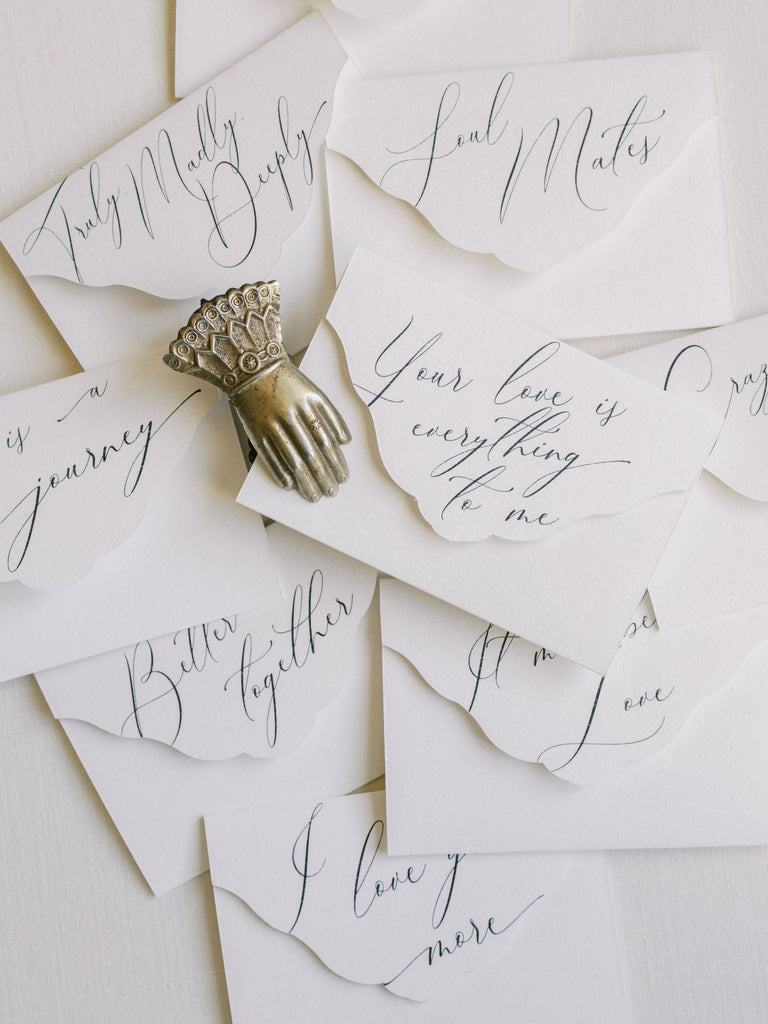 Truly Madly
Deeply
Soul
Mates
Your love is
everything
to me
is a
journey
Better
together
It
Love
I love
more